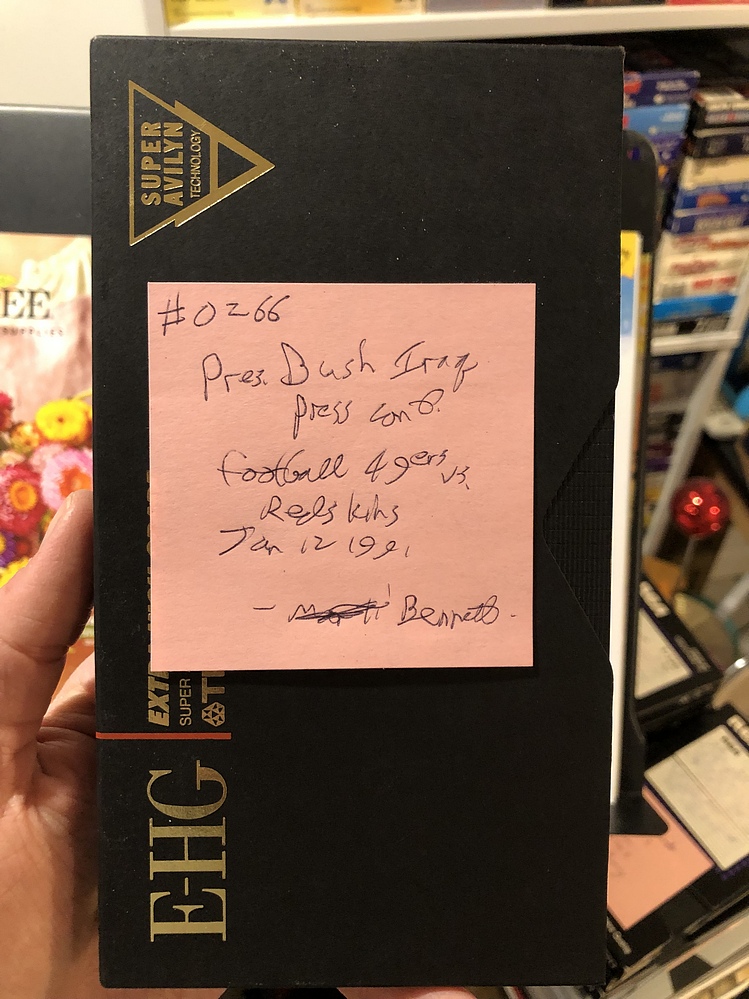 SUPER
AVILYN
TECHNOLOGY
#0266
Pres. Bush Iraq
press conf.
football 49ers vs.
Redskins
Jan 12 1991
- Bennett.
SUPER
E-HG
EE